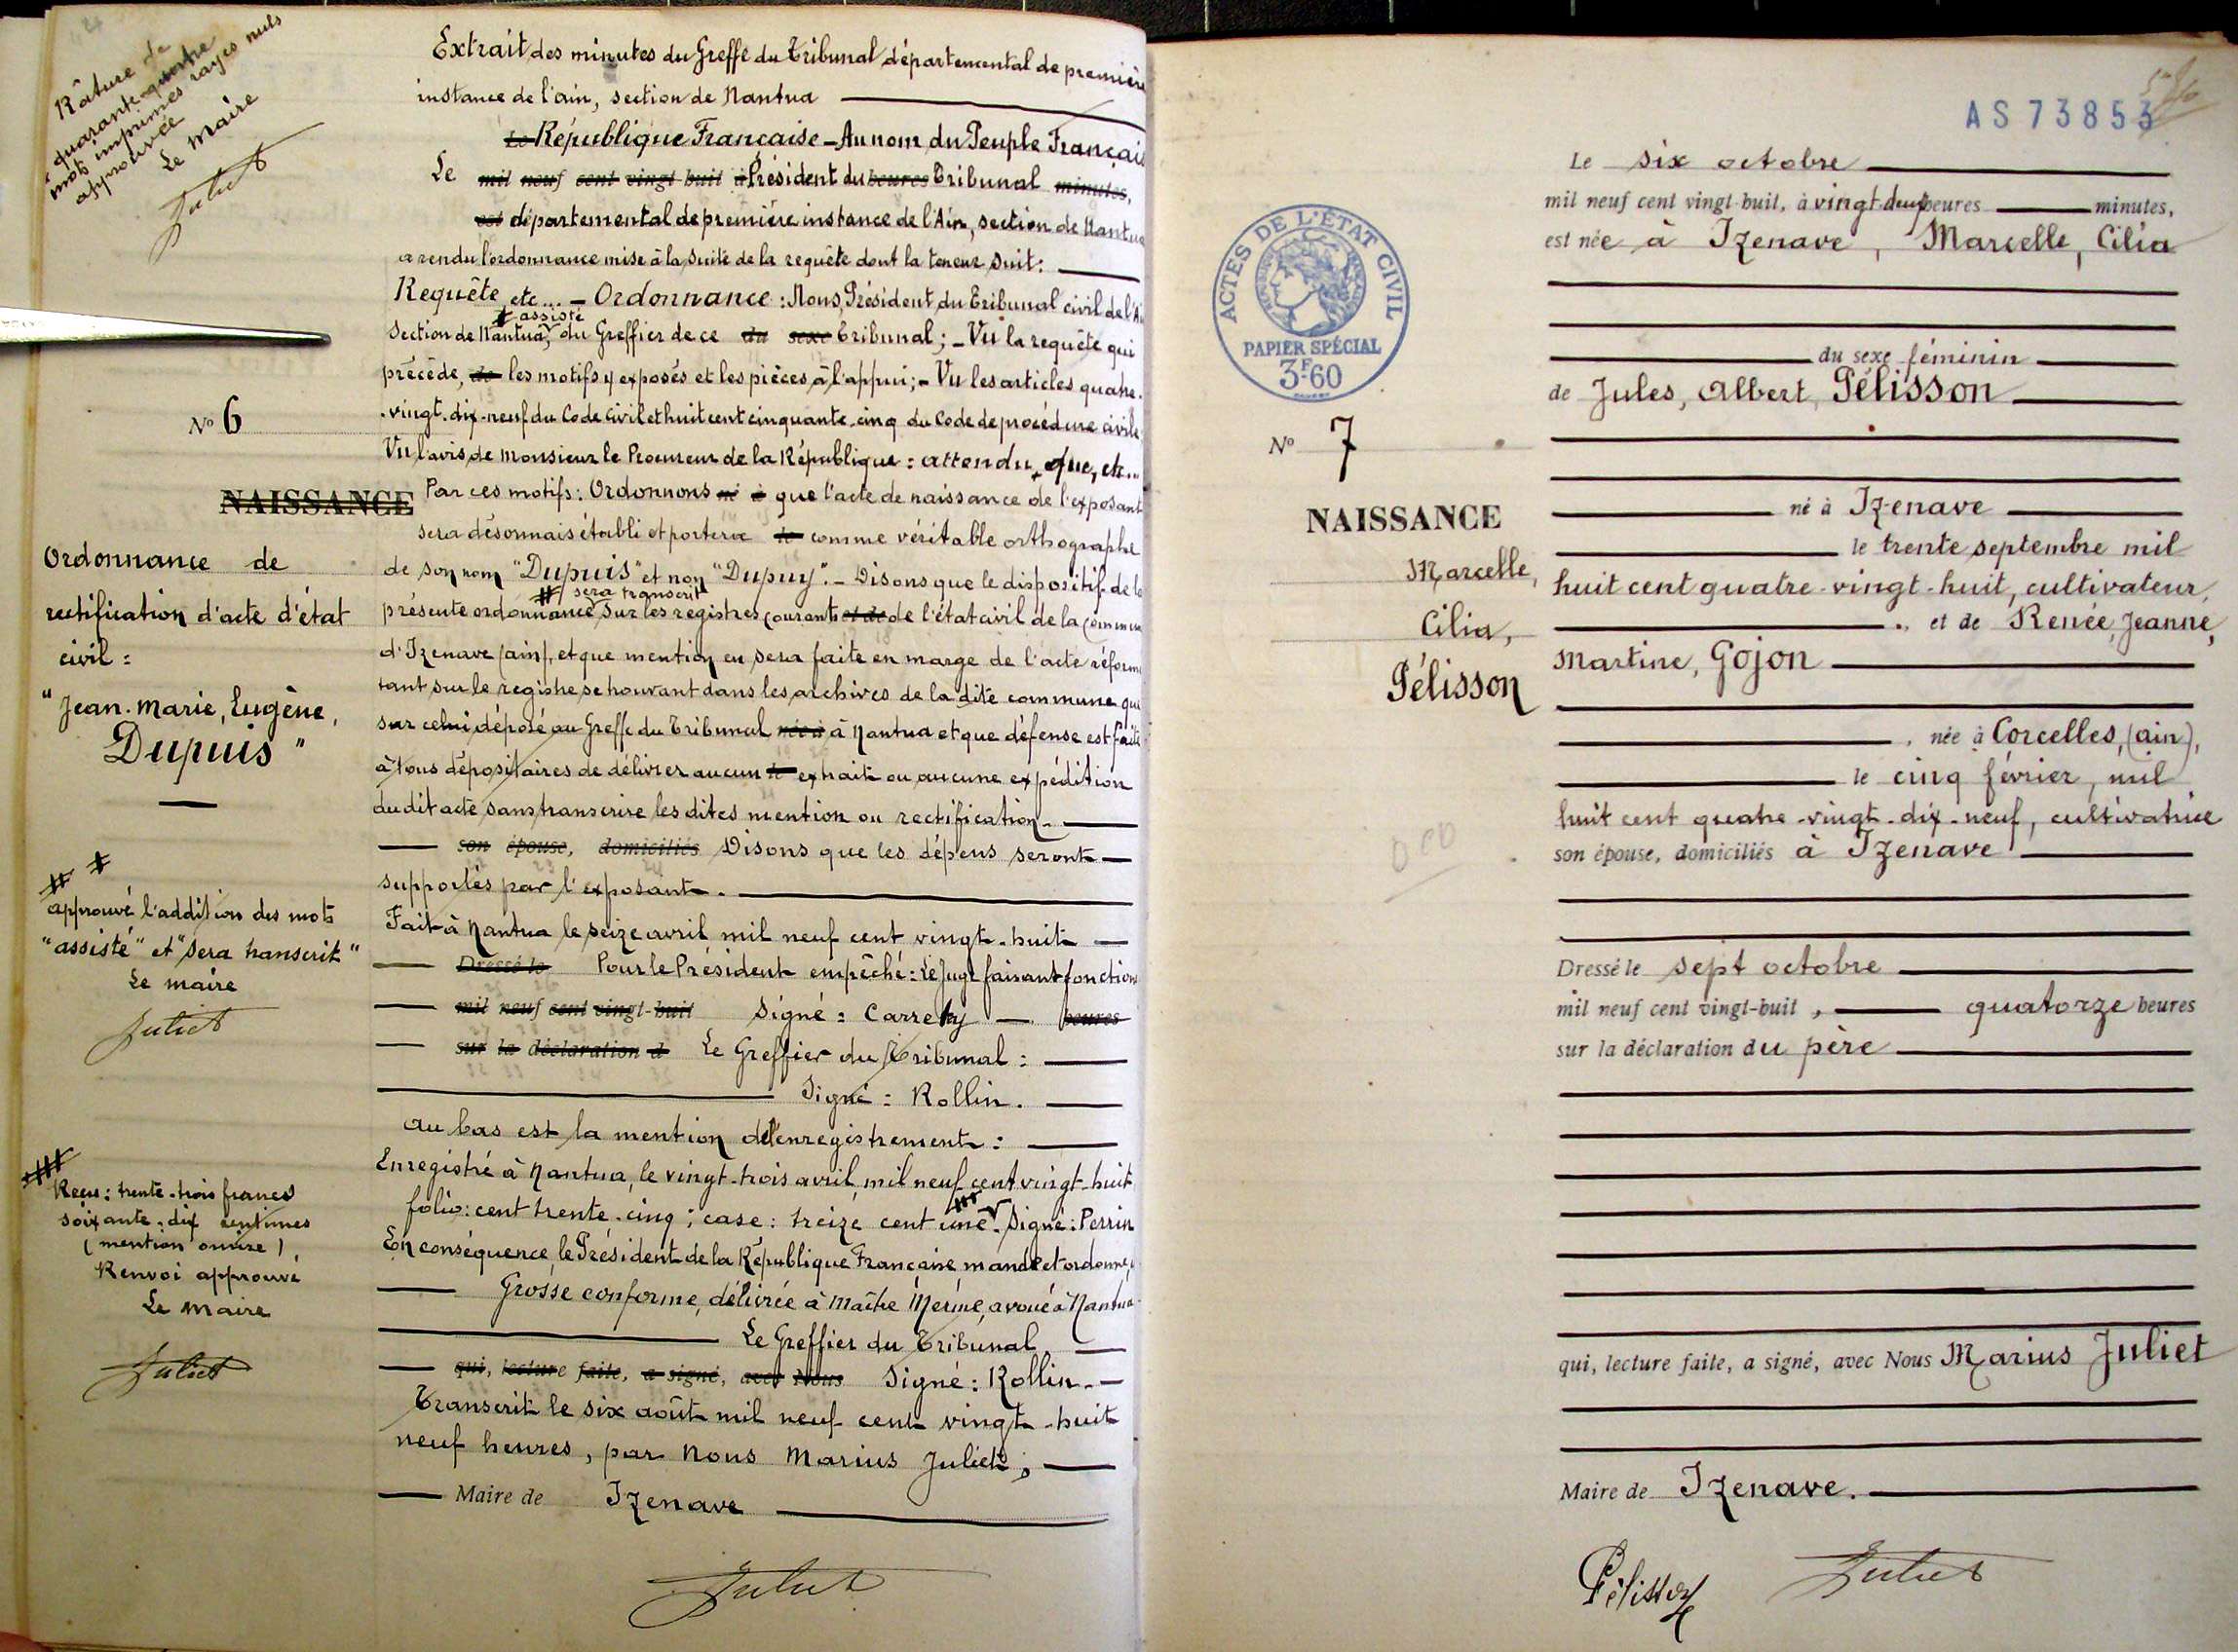 Râture de
quarante-quatre
mots imprimés rayés nuls
approuvée
Le Maire
Juliet
Extrait des minutes du Greffe du Tribunal départemental de première
instance de l'ain, section de Nantua
Le République Française - Au nom du Peuple Français
Le mil neuf cent vingt-huit à Président du heures Tribunal minutes,
est départemental de première instance de l'Ain, section de Nantua
a rendu l'ordonnance mise à la suite de la requête dont la teneur suit :
Requête, etc... - Ordonnance : Nous, Président du Tribunal civil de l'Ain
# assisté
Section de Nantua, du Greffier de ce du sexe Tribunal ; - Vu la requête qui
précède, de les motifs y exposés et les pièces à l'appui ; - Vu les articles quatre-
-vingt-dix-neuf du Code Civil et huit cent cinquante-cinq du Code de procédure civile
Vu l'avis de Monsieur le Procureur de la République : attendu que, etc...
N° 6
NAISSANCE
Par ces motifs : Ordonnons né à que l'acte de naissance de l'exposant
sera désormais établi et portera le comme véritable orthographe
de son nom "Dupuis" et non "Dupuy". - Disons que le dispositif de la
## sera transcrit
présente ordonnance sur les registres courants et de de l'état civil de la commune
d'Izenave (ain), et que mention en sera faite en marge de l'acte réformé
tant sur le registre se trouvant dans les archives de la dite commune que
sur celui déposé au Greffe du Tribunal née à à Nantua et que défense est faite
à tous dépositaires de délivrer aucun le extrait ou aucune expédition
du dit acte sans transcrire les dites mention ou rectification.
son épouse, domiciliés Disons que les dépens seront
supportés par l'exposant.
Ordonnance de
rectification d'acte d'état
civil :
"Jean-Marie, Eugène,
Dupuis"
Fait à Nantua le seize avril mil neuf cent vingt-huit
Dressé le Pour le Président empêché : Le Juge faisant fonction
mil neuf cent vingt-huit Signé : Carrety heures
sur la déclaration d Le Greffier du Tribunal :
Signé : Rollin.
## #
approuvé l'addition des mots
"assisté" et "sera transcrit"
Le Maire
Juliet
au bas est la mention de l'enregistrement :
Enregistré à Nantua, le vingt-trois avril, mil neuf cent vingt-huit
folio : cent trente-cinq ; case : treize cent une. ### Signé : Perrin
En conséquence, le Président de la République Française mande et ordonne,
Grosse conforme, délivrée à Maître Merme, avoué à Nantua.
Le Greffier du Tribunal
qui, lecture faite, a signé, avec Nous Signé : Rollin.
Transcrit le six août mil neuf cent vingt-huit
neuf heures, par Nous Marius Juliet,
Maire de Izenave
Juliet
###
Reçu : trente-trois francs
soixante-dix centimes
(mention omise)
Renvoi approuvé
Le Maire
Juliet
AS 73853
ACTES DE L'ÉTAT CIVIL
PAPIER SPÉCIAL
3F60
N° 7
NAISSANCE
Marcelle,
Cilia,
Pélisson
Le six octobre
mil neuf cent vingt-huit, à vingt-deux heures minutes,
est née à Izenave, Marcelle, Cilia
du sexe féminin
de Jules, Albert, Pélisson
né à Izenave
le trente septembre mil
huit cent quatre-vingt-huit, cultivateur,
, et de Renée, Jeanne,
Martine, Gojon
, née à Corcelles, (ain),
le cinq février, mil
huit cent quatre-vingt-dix-neuf, cultivatrice
son épouse, domiciliés à Izenave
Dressé le sept octobre
mil neuf cent vingt-huit, quatorze heures
sur la déclaration du père
qui, lecture faite, a signé, avec Nous Marius Juliet
Maire de Izenave.
Pélisson
Juliet